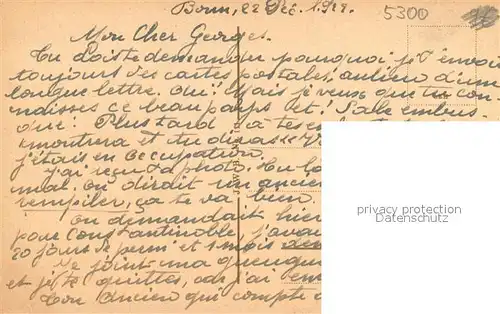 Bonn, 22 Déc. 1922.
5300
Mon Cher Georges.
Tu dois te demander pourquoi je t'envoie
toujours des cartes postales, au lieu d'une
longue lettre. Oui! Mais je veux que tu con-
naisses ce beau pays et!
que! Plus tard à tes
montrera et tu diras
j'étais en Occupation.
J'ai reçu ta photo. Tu
mal. On dirait un ancien
rempiler, ça te va bien.
On demandait hier
pour Constantinople j'avais
20 jours de permi et 1 mois
Je joint ma
et je te quittes, car j'ai
Ton Ancien qui compte
privacy protection
Datenschutz